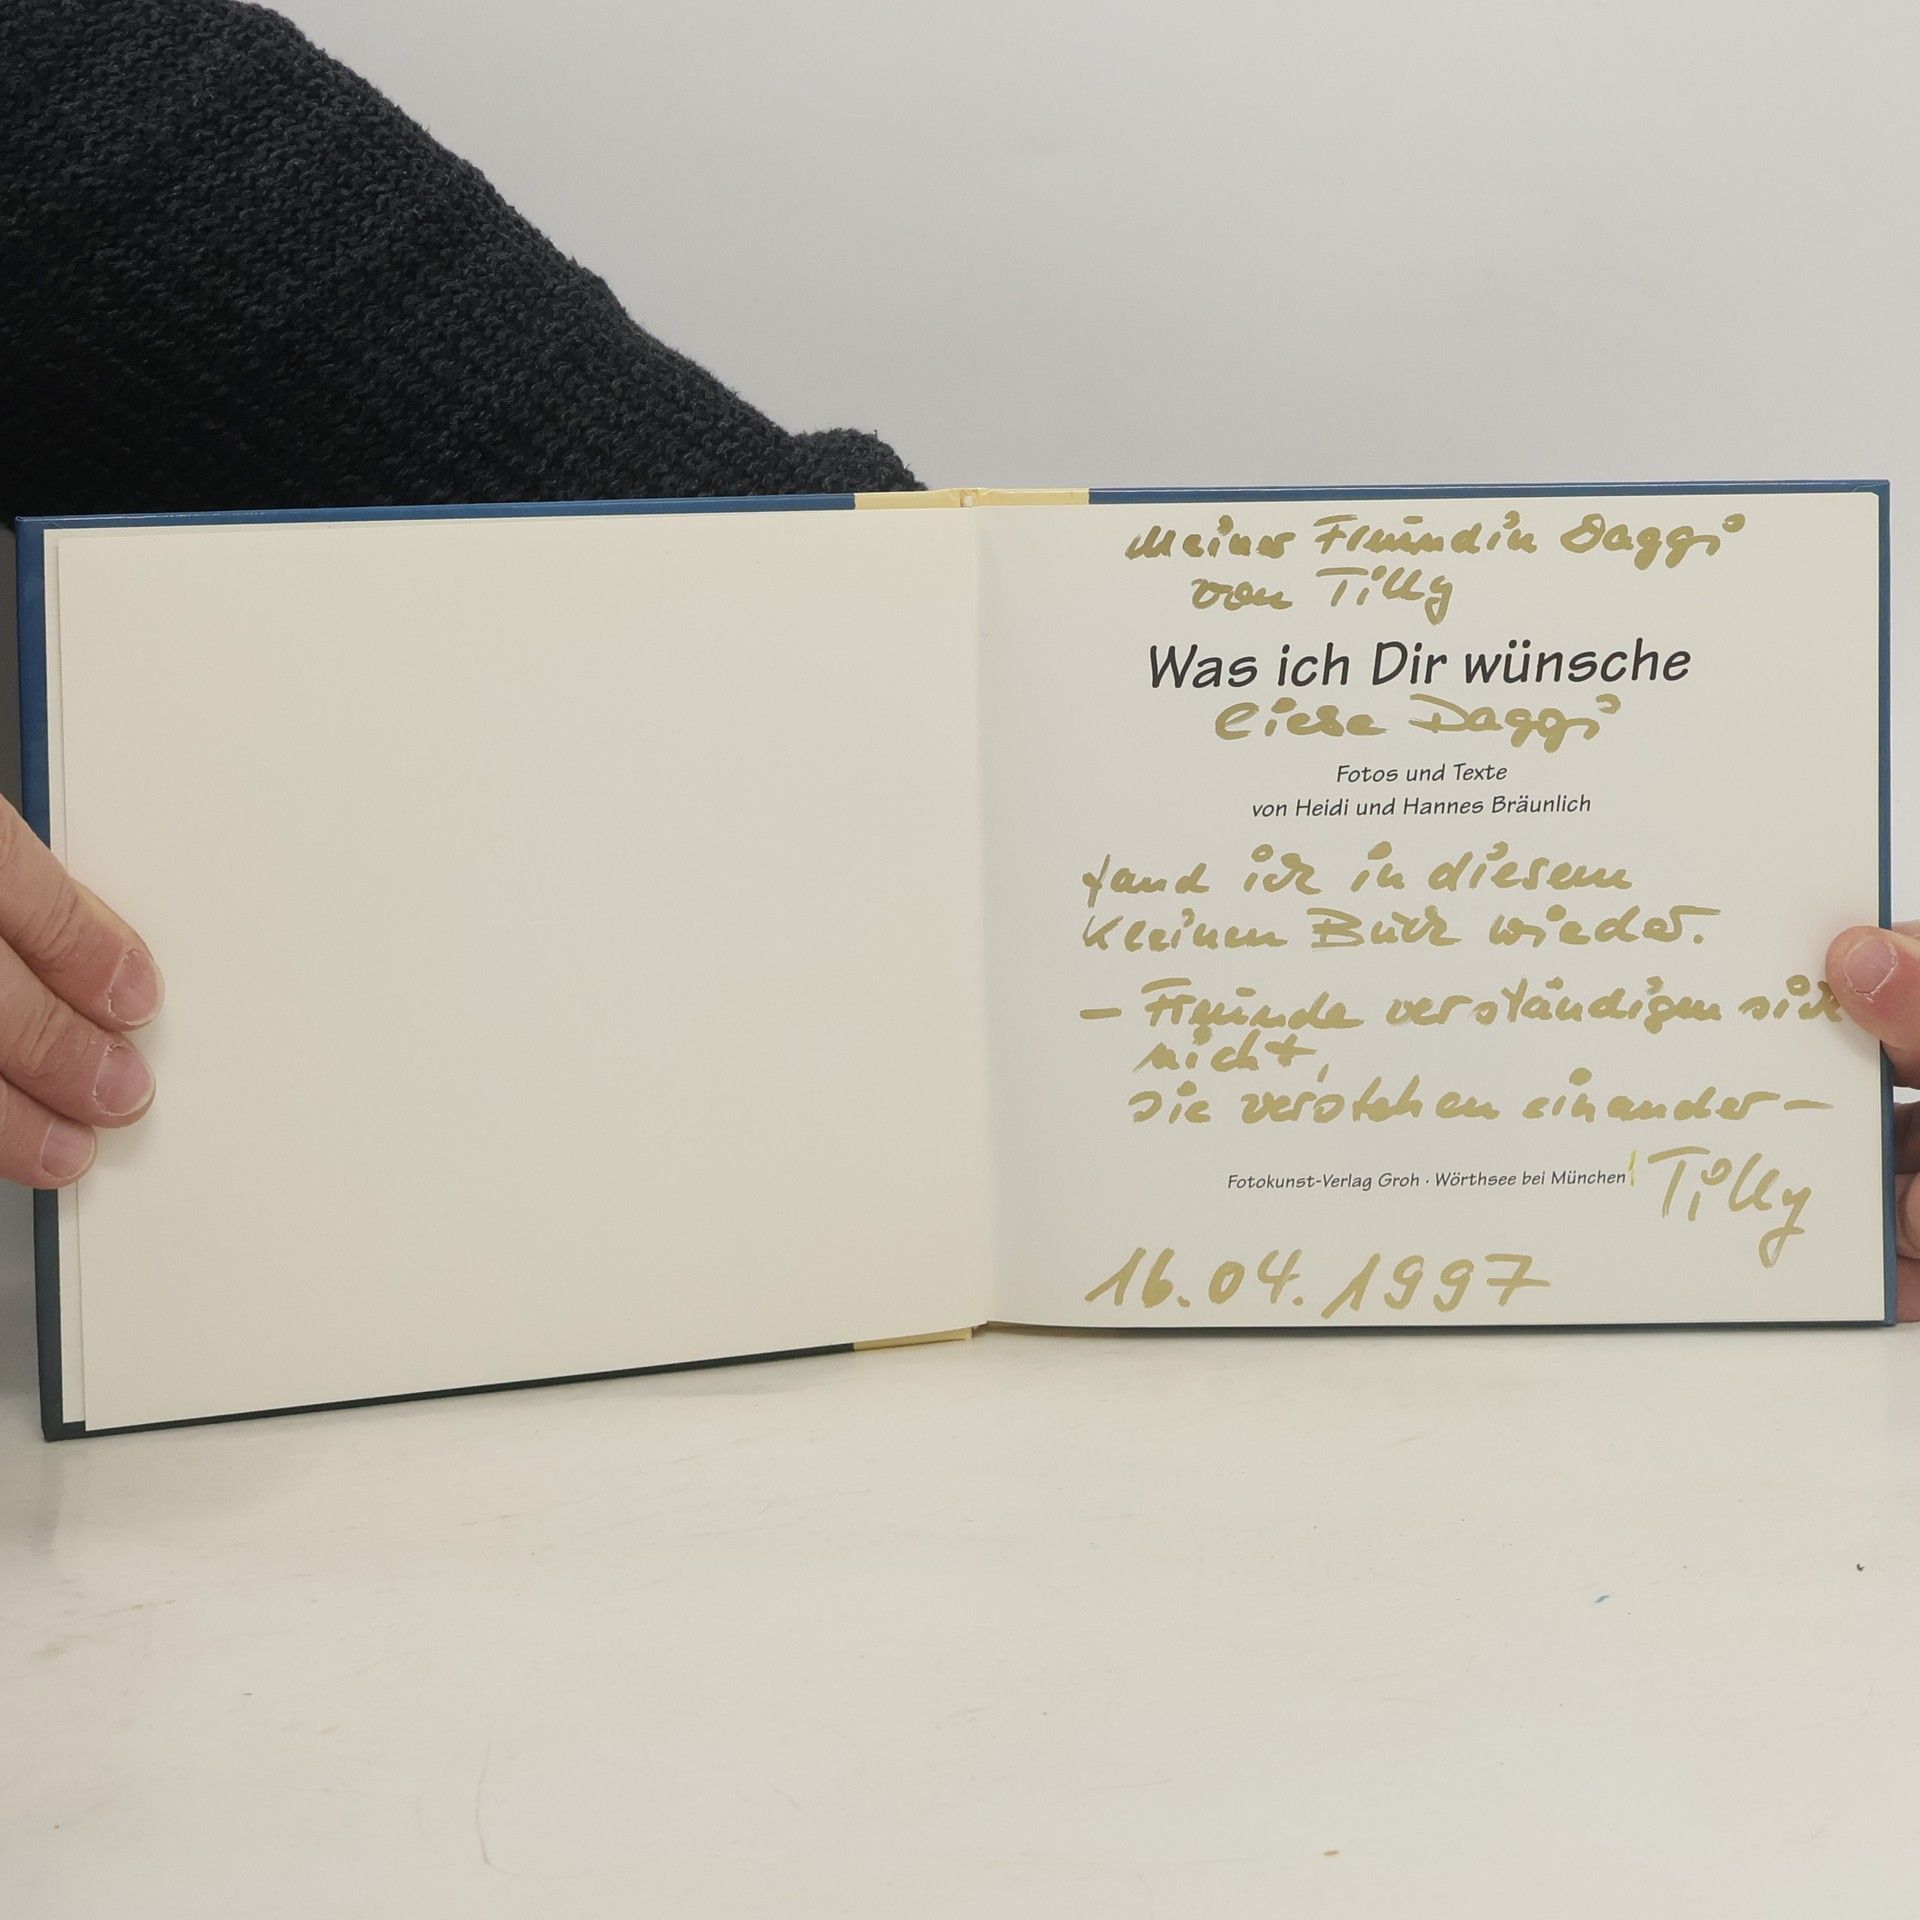 Meiner Freundin Daggi
von Tilly
Was ich Dir wünsche
liebe Daggi
Fotos und Texte
von Heidi und Hannes Bräunlich
fand ich in diesem
kleinen Buch wieder.
- Freunde verständigen sich
nicht,
sie verstehen einander -
Fotokunst-Verlag Groh · Wörthsee bei München
Tilly
16.04.1997